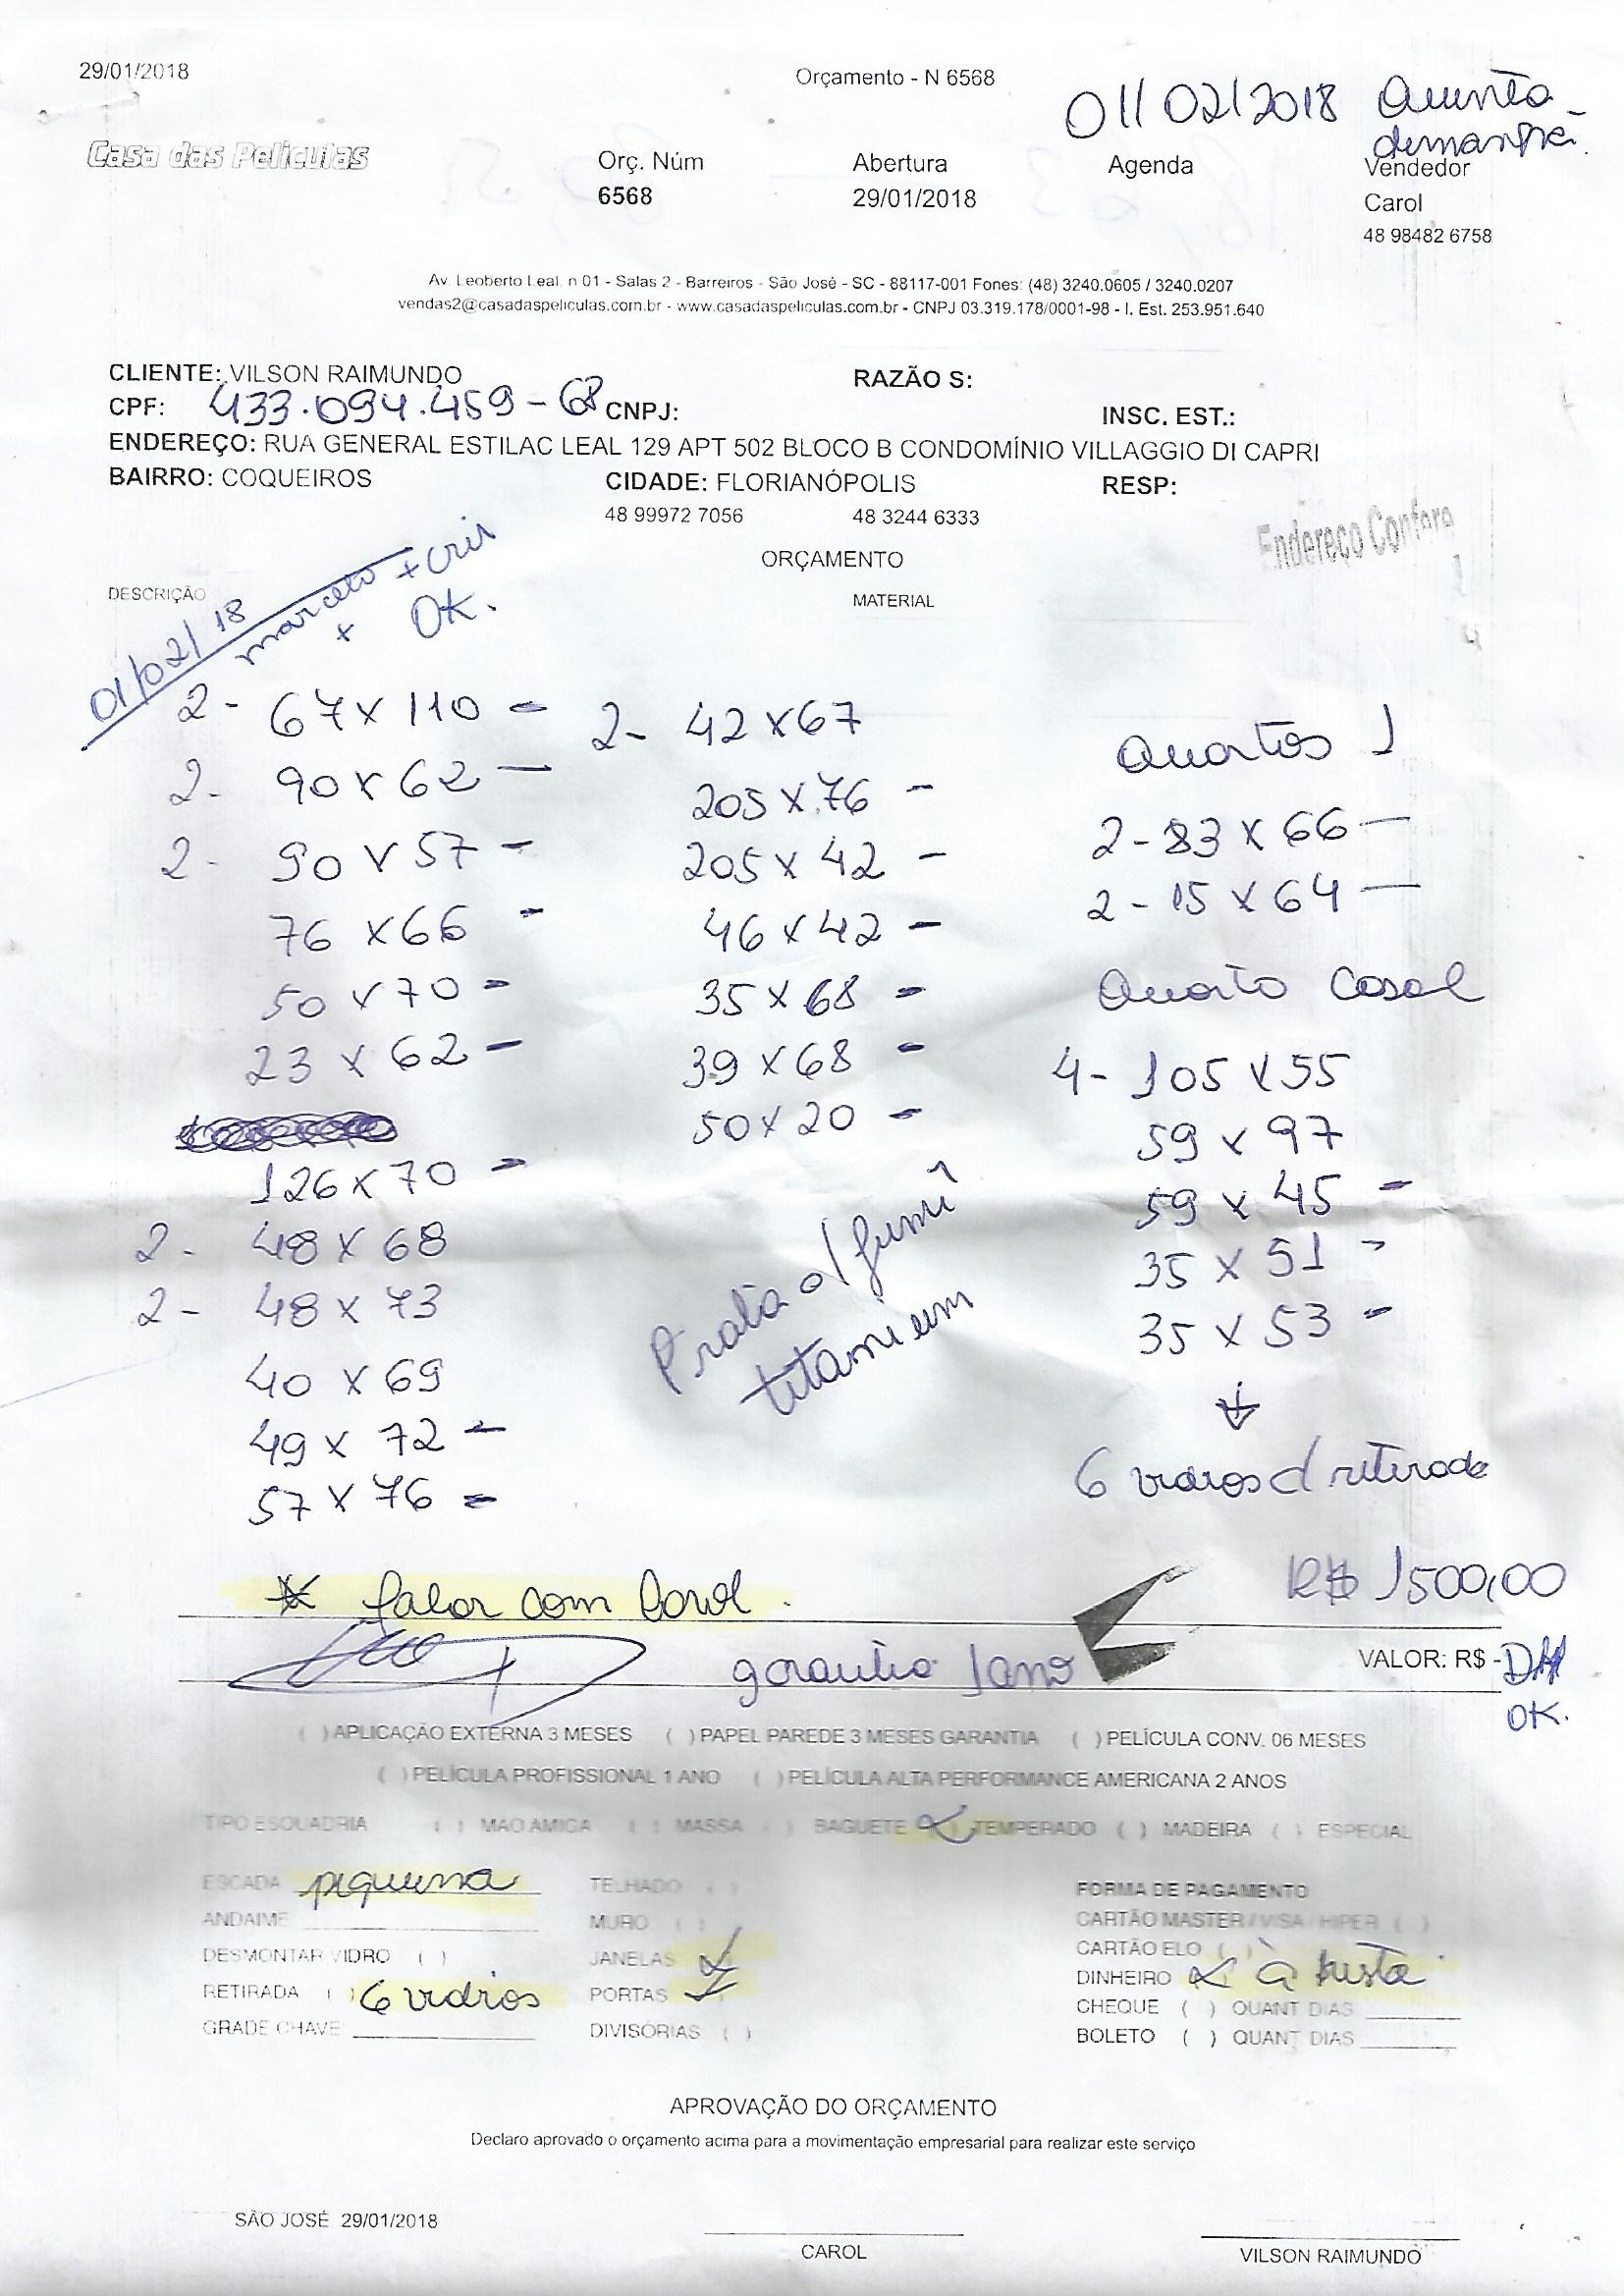 29/01/2018
Orçamento - N 6568
01/02/2018 Quinta
Casa das Películas
Orç. Núm
Abertura
Agenda
Vendedor
6568
29/01/2018
Carol
48 98482 6758
Av. Leoberto Leal, n 01 - Salas 2 - Barreiros - São José - SC - 88117-001 Fones: (48) 3240.0605 / 3240.0207
vendas2@casadaspeliculas.com.br - www.casadaspeliculas.com.br - CNPJ 03.319.178/0001-98 - I. Est. 253.951.640
CLIENTE: VILSON RAIMUNDO
RAZÃO S:
CPF: 433.094.459-68 CNPJ:
INSC. EST.:
ENDEREÇO: RUA GENERAL ESTILAC LEAL 129 APT 502 BLOCO B CONDOMÍNIO VILLAGGIO DI CAPRI
BAIRRO: COQUEIROS
CIDADE: FLORIANÓPOLIS
RESP:
48 99972 7056
48 3244 6333
Endereço Confere
ORÇAMENTO
DESCRIÇÃO
MATERIAL
01/02/18
marcelo + cris
+ OK.
2- 67x110 -
2- 90x62 -
2- 90x57 -
76x66 -
50x70 -
23x62 -
126x70 -
2- 48x68
2- 48x73
40x69
49x72 -
57x76 -
2- 42x67
205x76 -
205x42 -
46x42 -
35x68 -
39x68 -
50x20 -
Prata o/fumê
titanium
Quartos 1
2-83x66 -
2-15x64 -
Quarto Casal
4- 105x55
59x97
59x45 -
35x51 -
35x53 -
6 vidros c/ retirada
* falar com Carol.
R$ 1500,00
garantia 1 ano
VALOR: R$ - DH
OK.
( ) APLICAÇÃO EXTERNA 3 MESES ( ) PAPEL PAREDE 3 MESES GARANTIA ( ) PELÍCULA CONV. 06 MESES
( ) PELÍCULA PROFISSIONAL 1 ANO ( ) PELÍCULA ALTA PERFORMANCE AMERICANA 2 ANOS
TIPO ESQUADRIA ( ) MAO AMIGA ( ) MASSA ( ) BAGUETE (x) TEMPERADO ( ) MADEIRA ( ) ESPECIAL
ESCADA pequena
TELHADO ( )
FORMA DE PAGAMENTO
ANDAIME
MURO ( )
CARTÃO MASTER / VISA / HIPER ( )
DESMONTAR VIDRO ( )
JANELAS x
CARTÃO ELO ( )
RETIRADA ( ) 6 vidros
PORTAS x
DINHEIRO x à vista
GRADE CHAVE
DIVISORIAS ( )
CHEQUE ( ) QUANT DIAS
BOLETO ( ) QUANT DIAS
APROVAÇÃO DO ORÇAMENTO
Declaro aprovado o orçamento acima para a movimentação empresarial para realizar este serviço
SÃO JOSÉ 29/01/2018
CAROL
VILSON RAIMUNDO